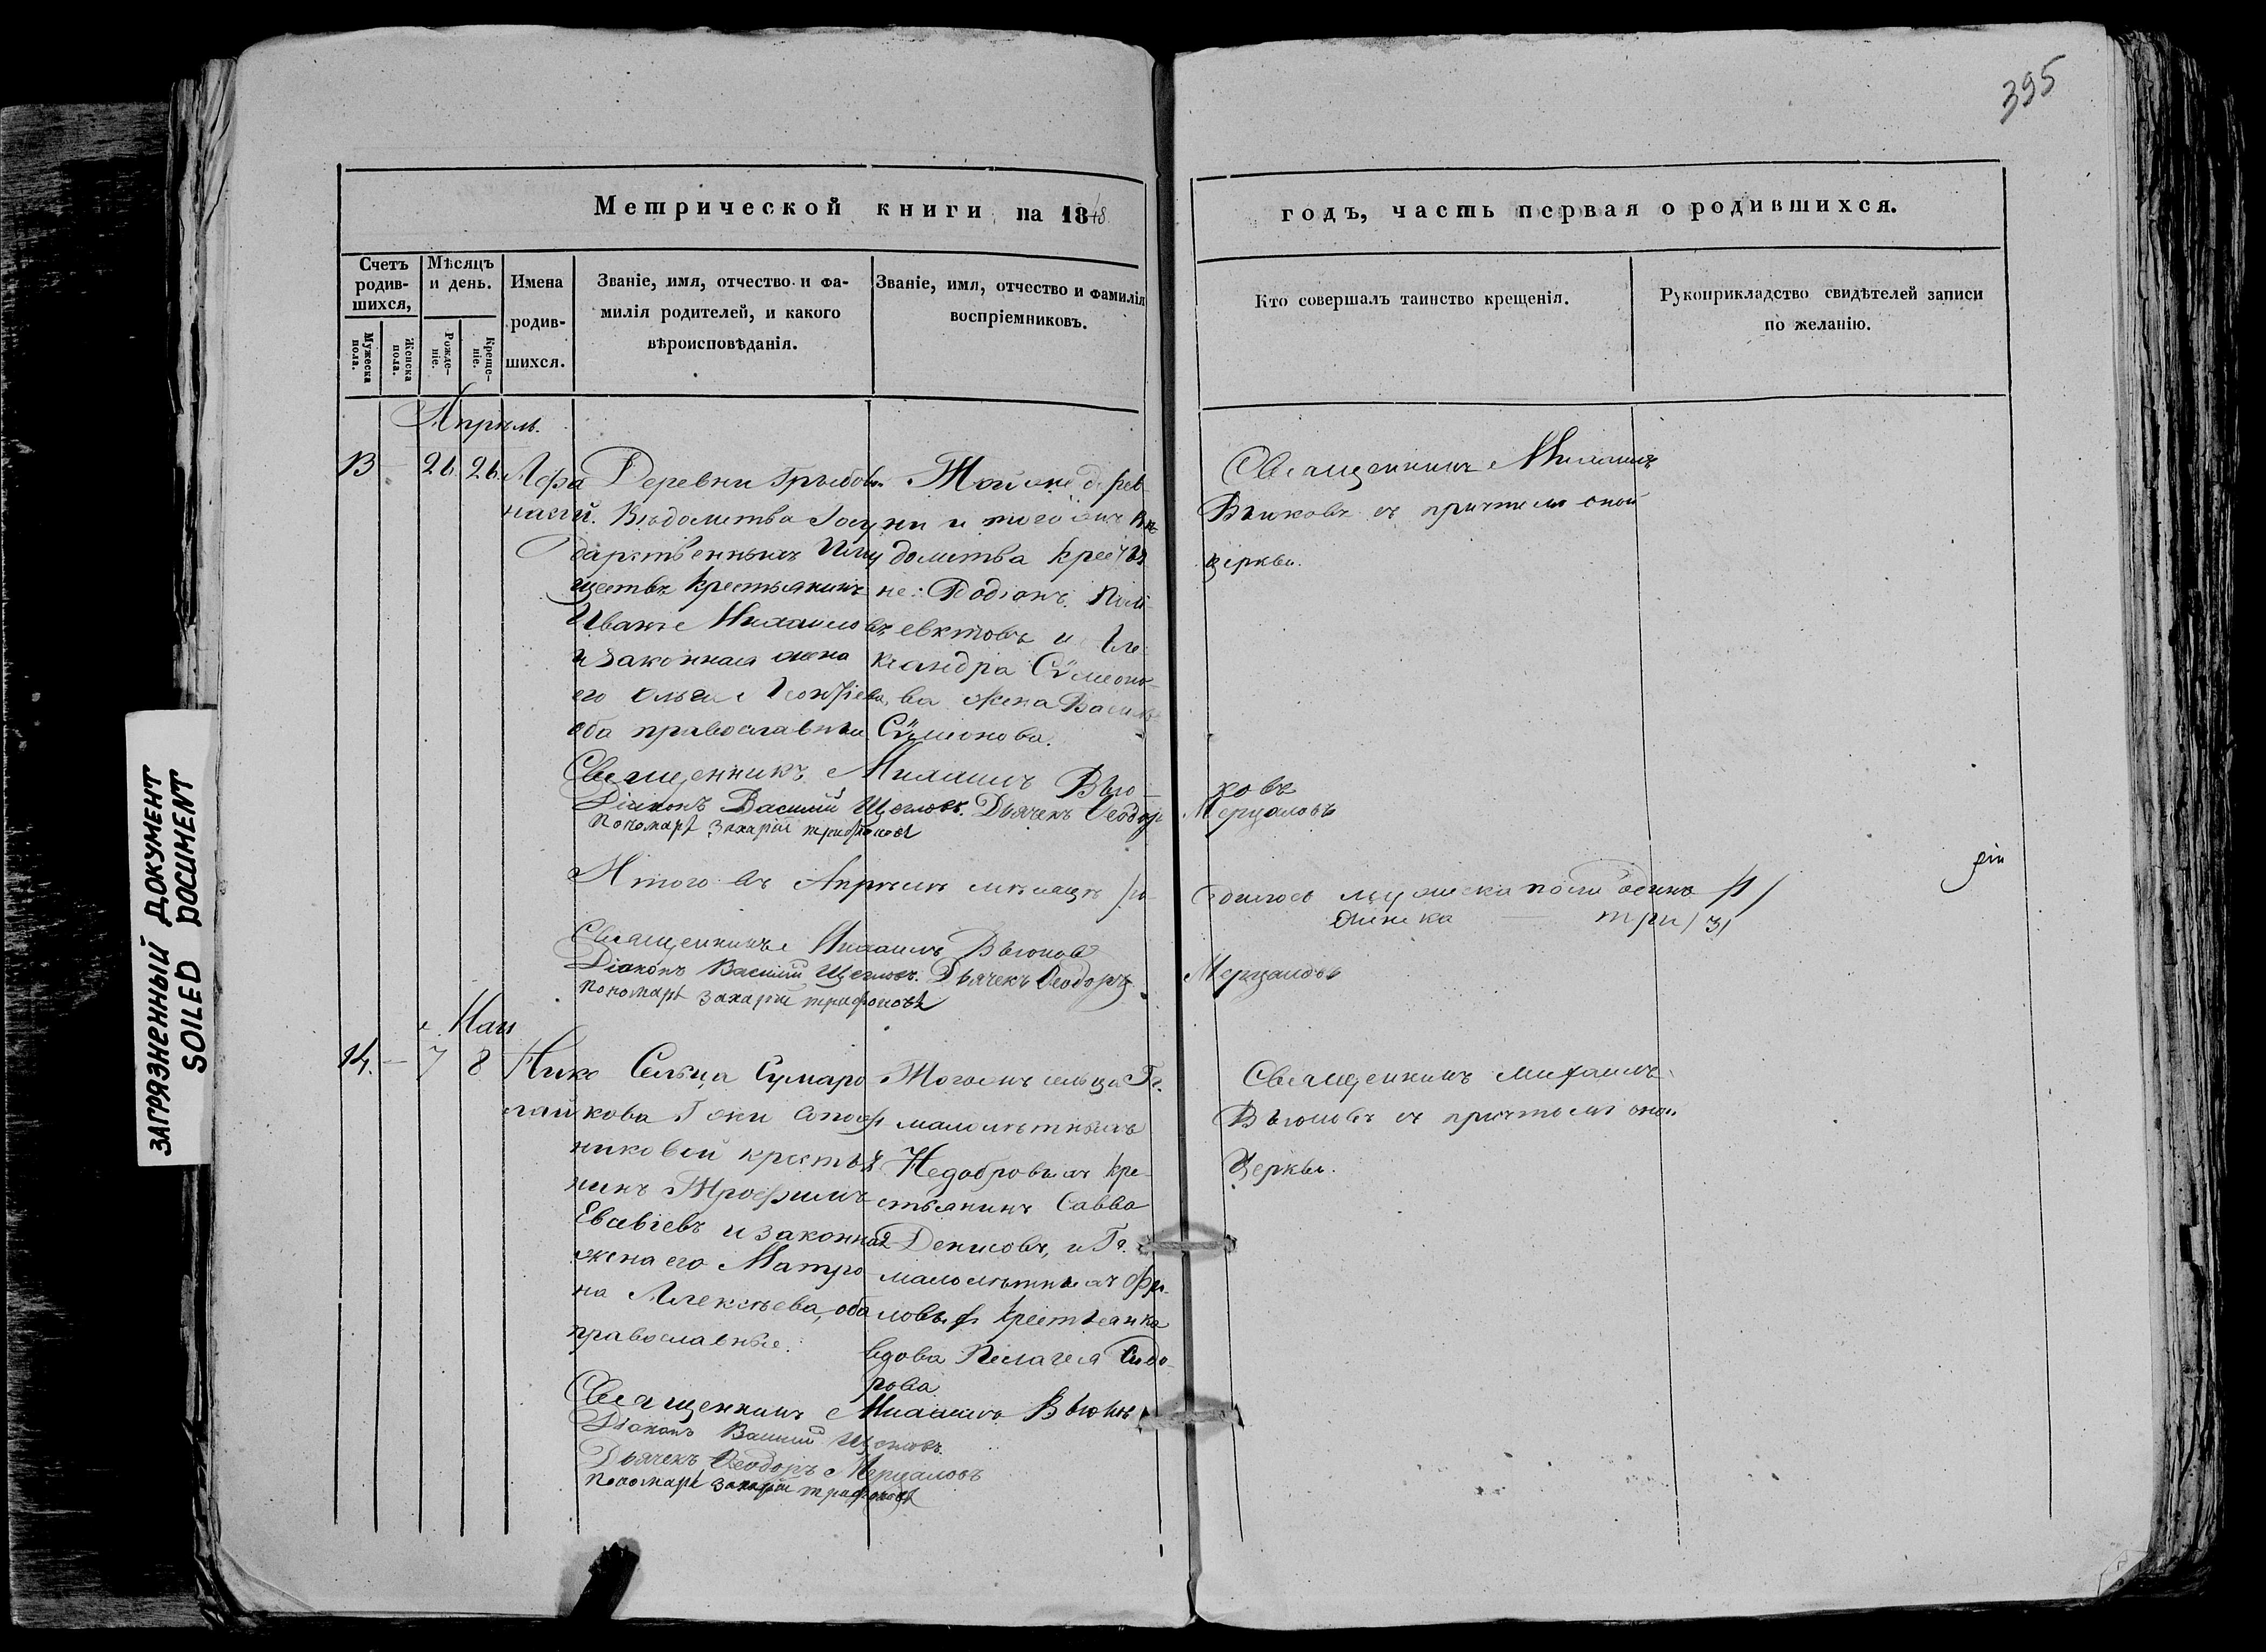 395
Метрической книги на 1848
годъ, часть первая о родившихся.
Счетъ родив-шихся,
Мужеска пола.
Женска пола.
Мѣсяцъ и день.
Рожде-ніе.
Креще-ніе.
Имена
родив-
шихся.
Званіе, имя, отчество и фа-
милія родителей, и какого
вѣроисповѣданія.
Званіе, имя, отчество и фамилія
воспріемниковъ.
Кто совершалъ таинство крещенія.
Рукоприкладство свидѣтелей записи
по желанію.
Апрѣль.
13 - 26 26
Афа
насій.
Деревни
Вѣдомства Госу
дарственныхъ Иму
ществъ крестьянинъ
Иванъ Михаиловъ
и законная жена
его Ольга Леонтіева,
оба православные.
Той же дерев
ни и того жъ Вѣ
домства крестья
не: Родіонъ Поли
евктовъ и Але
ксандра Сѵмеоно-
ва жена Василья
Сѵмеонова.
Священникъ Михаилъ
Вьюковъ съ причтомъ оной
церкви.
Священникъ Михаилъ Вью-
ковъ
Діаконъ Василій Щегловъ. Дьячекъ Ѳеодоръ
Мерцаловъ
Пономарь Захарій Трифоновъ
Итого въ Апрѣлѣ мѣсяцѣ ро-
дилось мужеска пола одинъ /1/
женска — три /3/
Священникъ Михаилъ Вьюковъ
Діаконъ Василій Щегловъ. Дьячекъ Ѳеодоръ
Мерцаловъ
Пономарь Захарій Трифоновъ
Маія
14. - 7 8
Нико
лай
Сельца Сумаро
кова Г жи
никовой крестья
нинъ Трофимъ
Евсевіевъ и законная
жена его Матро
на Алексѣева, оба
православные.
Тогожъ сельца Гг.
малолѣтныхъ
Недобровыхъ кре-
стьянинъ Савва
Денисовъ, и Гг.
малолѣтныхъ Фи-
ловыхъ крестьянка
вдова Пелагея Сидо-
рова.
Священникъ Михаилъ
Вьюковъ съ причтомъ оной
Церкви.
Священникъ Михаилъ Вьюковъ
Діаконъ Василій Щегловъ.
Дьячекъ Ѳеодоръ Мерцаловъ
Пономарь Захарій Трифоновъ
ЗАГРЯЗНЕННЫЙ ДОКУМЕНТ
SOILED DOCUMENT